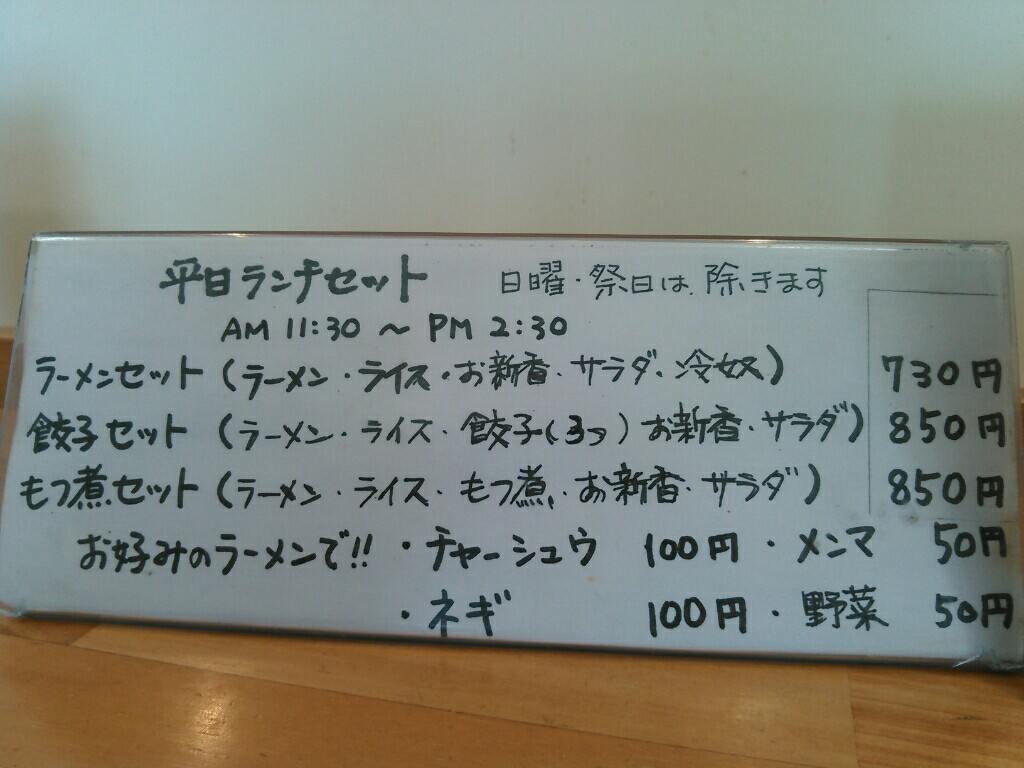 平日ランチセット 日曜・祭日は除きます
AM 11:30 ～ PM 2:30
ラーメンセット (ラーメン・ライス・お新香・サラダ・冷奴) 730円
餃子セット (ラーメン・ライス・餃子(3つ) お新香・サラダ) 850円
もつ煮セット (ラーメン・ライス・もつ煮・お新香・サラダ) 850円
お好みのラーメンで!! ・チャーシュウ 100円 ・メンマ 50円
・ネギ 100円 ・野菜 50円